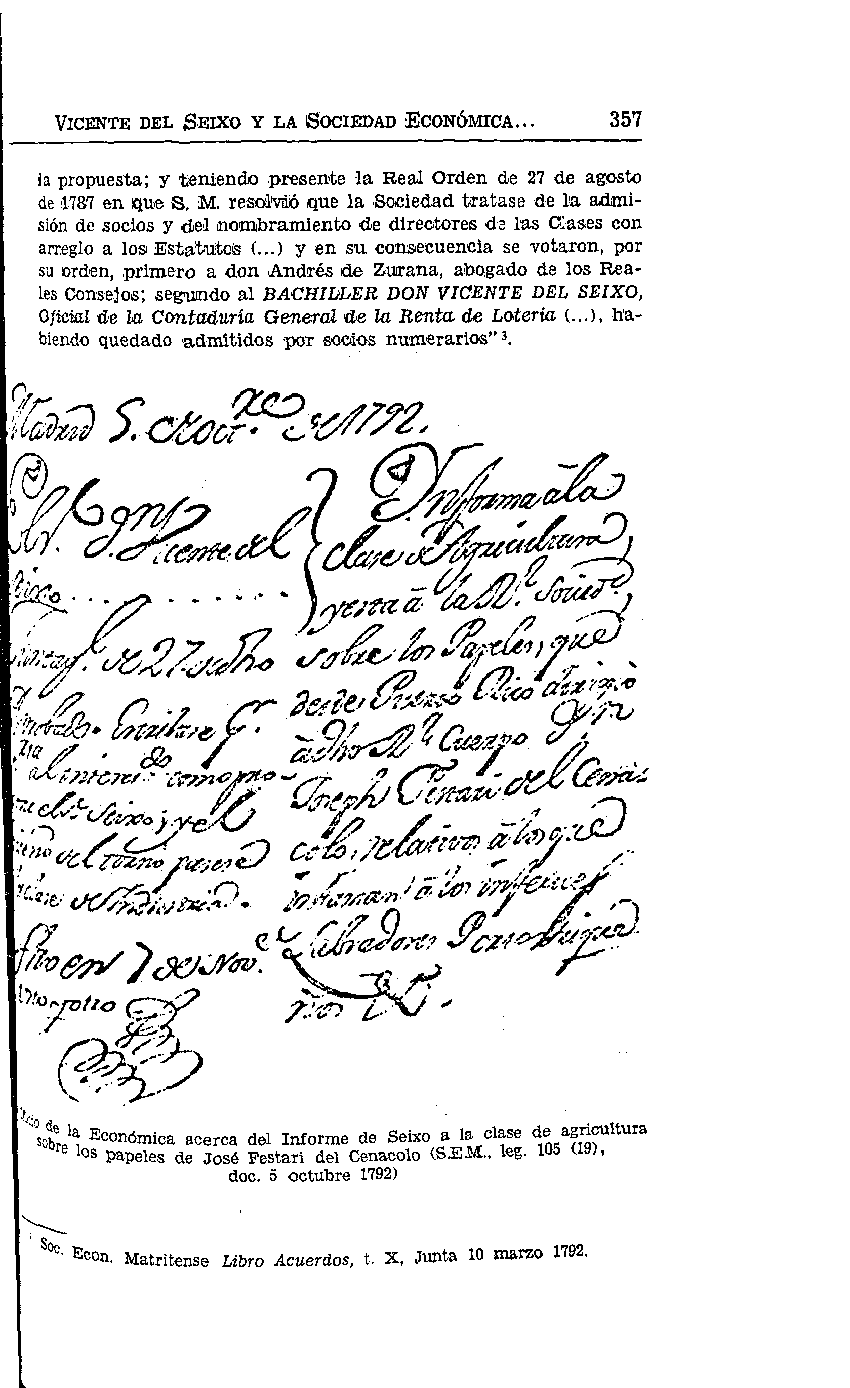 VICENTE DEL SEIXO Y LA SOCIEDAD ECONÓMICA... 357
la propuesta; y teniendo presente la Real Orden de 27 de agosto
de 1787 en que S. M. resolvió que la Sociedad tratase de la admi-
sión de socios y del nombramiento de directores de las Clases con
arreglo a los Estatutos (...) y en su consecuencia se votaron, por
su orden, primero a don Andrés de Zurana, abogado de los Rea-
les Consejos; segundo al BACHILLER DON VICENTE DEL SEIXO,
Oficial de la Contaduría General de la Renta de Lotería (...), ha-
biendo quedado admitidos por socios numerarios" 3.
Madrid 5. de Oct.re de 1792.
Sr. Dn Vicente del
Seixo
de 27 de dho
Seixo; y el
del torno pasese
clase de Industria.
fho en 7 de Nov.e
Informa â la
clase de Agricultura,
y esta â la Rl. Socied.d,
sobre los Papeles, que
desde Puerto Rico dirigio
â dho Rl. Cuerpo Dn
Joseph Festari del Cena-
colo, relativos â los que
informan â los infelices
Labradores
de la Económica acerca del Informe de Seixo a la clase de agricultura
sobre los papeles de José Festari del Cenacolo (S.E.M., leg. 105 (19),
doc. 5 octubre 1792)
Soc. Econ. Matritense Libro Acuerdos, t. X, Junta 10 marzo 1792.